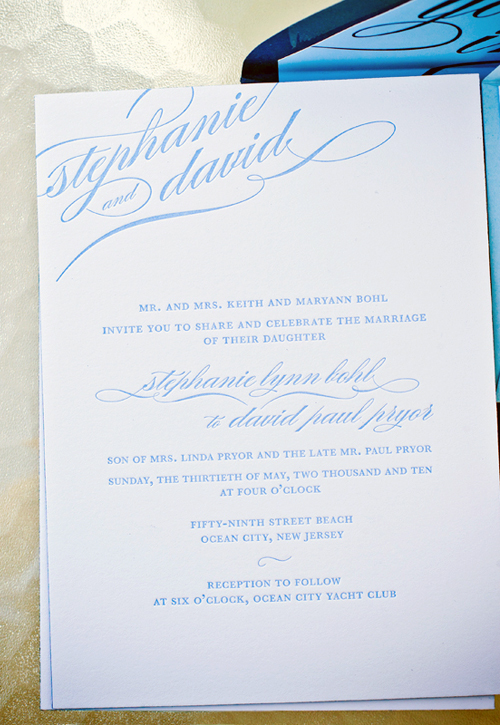 stephanie
and david
MR. AND MRS. KEITH AND MARYANN BOHL
INVITE YOU TO SHARE AND CELEBRATE THE MARRIAGE
OF THEIR DAUGHTER
stephanie lynn bohl
to david paul pryor
SON OF MRS. LINDA PRYOR AND THE LATE MR. PAUL PRYOR
SUNDAY, THE THIRTIETH OF MAY, TWO THOUSAND AND TEN
AT FOUR O'CLOCK
FIFTY-NINTH STREET BEACH
OCEAN CITY, NEW JERSEY
RECEPTION TO FOLLOW
AT SIX O'CLOCK, OCEAN CITY YACHT CLUB